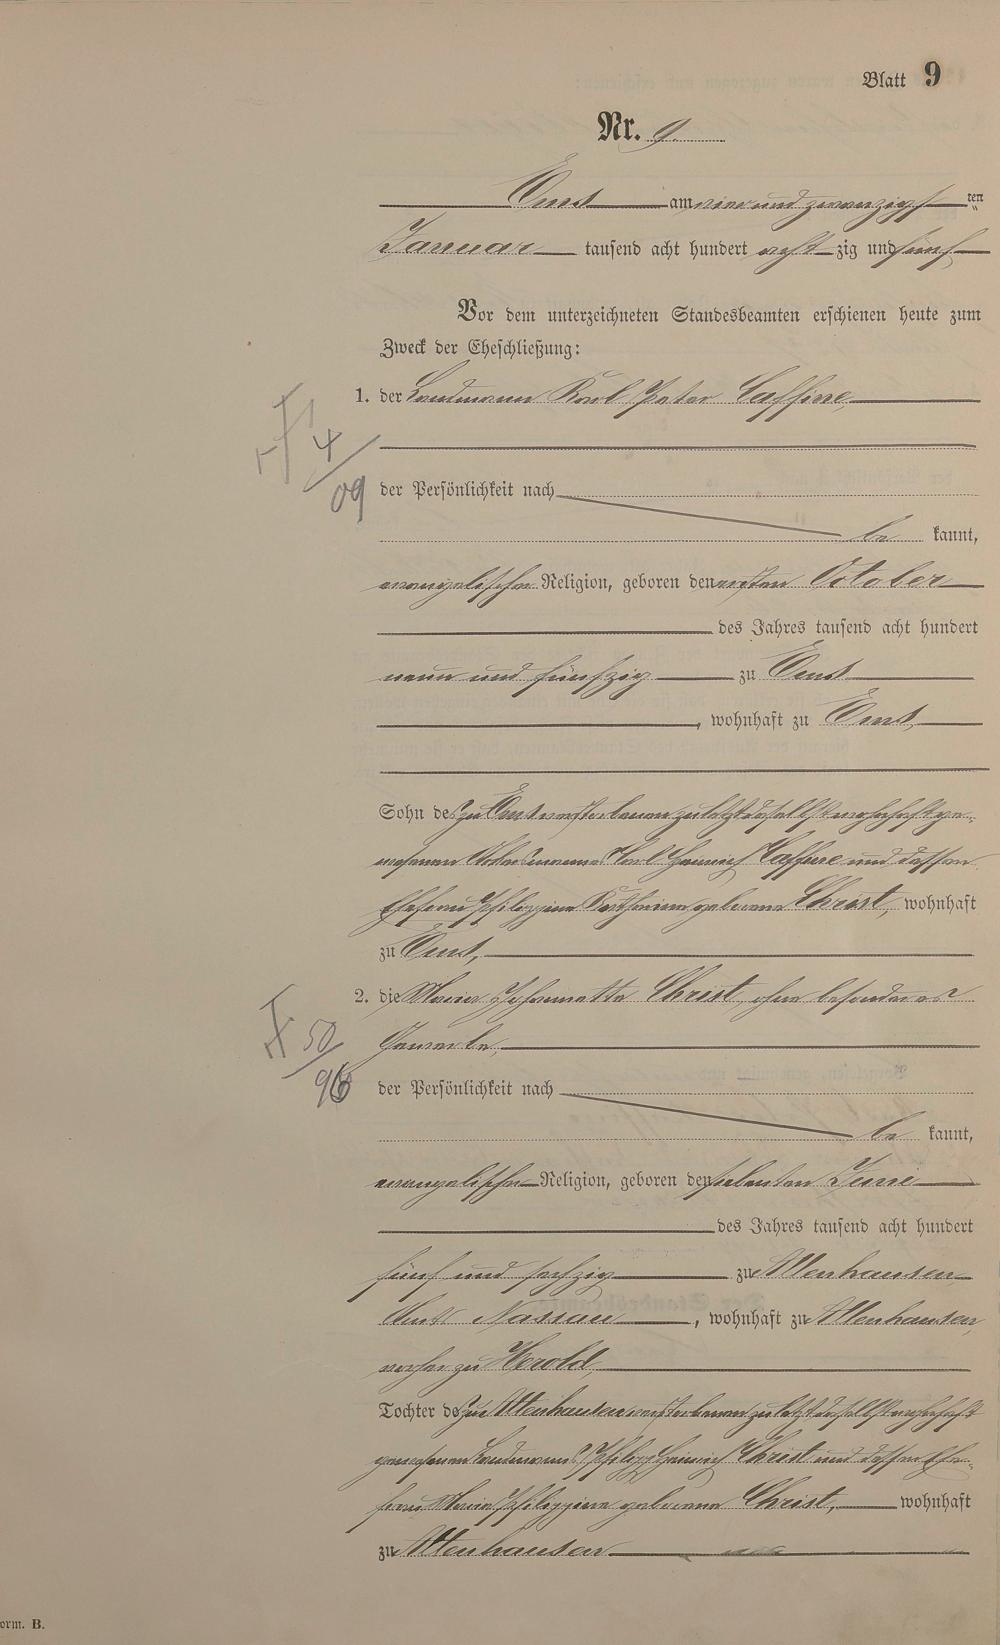 Blatt 9
Nr. 9.
Ems am vier und zwanzigsten
Januar tausend acht hundert achtzig und fünf
Vor dem unterzeichneten Standesbeamten erschienen heute zum
Zweck der Eheschließung:
1. der Landmann Karl Peter Caffine,
der Persönlichkeit nach
be kannt,
evangelischer Religion, geboren den ersten October
des Jahres tausend acht hundert
neun und fünfzig zu Ems
, wohnhaft zu Ems,
Sohn des zu Ems verstorbenen zuletzt daselbst wohnhaft ge-
wesenen Ackersmanns Karl Heinrich Caffine und dessen
Ehefrau Philippine Katharine geborene Christ, wohnhaft
zu Ems,
2. die Maria Johannette Christ, ohne besonderes
Gewerbe,
der Persönlichkeit nach
be kannt,
evangelischer Religion, geboren den siebenten Juni
des Jahres tausend acht hundert
fünf und sechzig zu Attenhausen
Amts Nassau, wohnhaft zu Attenhausen,
vorher zu Herold,
Tochter des zu Attenhausen verstorbenen zuletzt daselbst wohnhaft
gewesenen Landmanns Philipp Heinrich Christ und dessen Ehe-
frau Maria Philippine geborene Christ, wohnhaft
zu Attenhausen
4/09
50/96
orm. B.